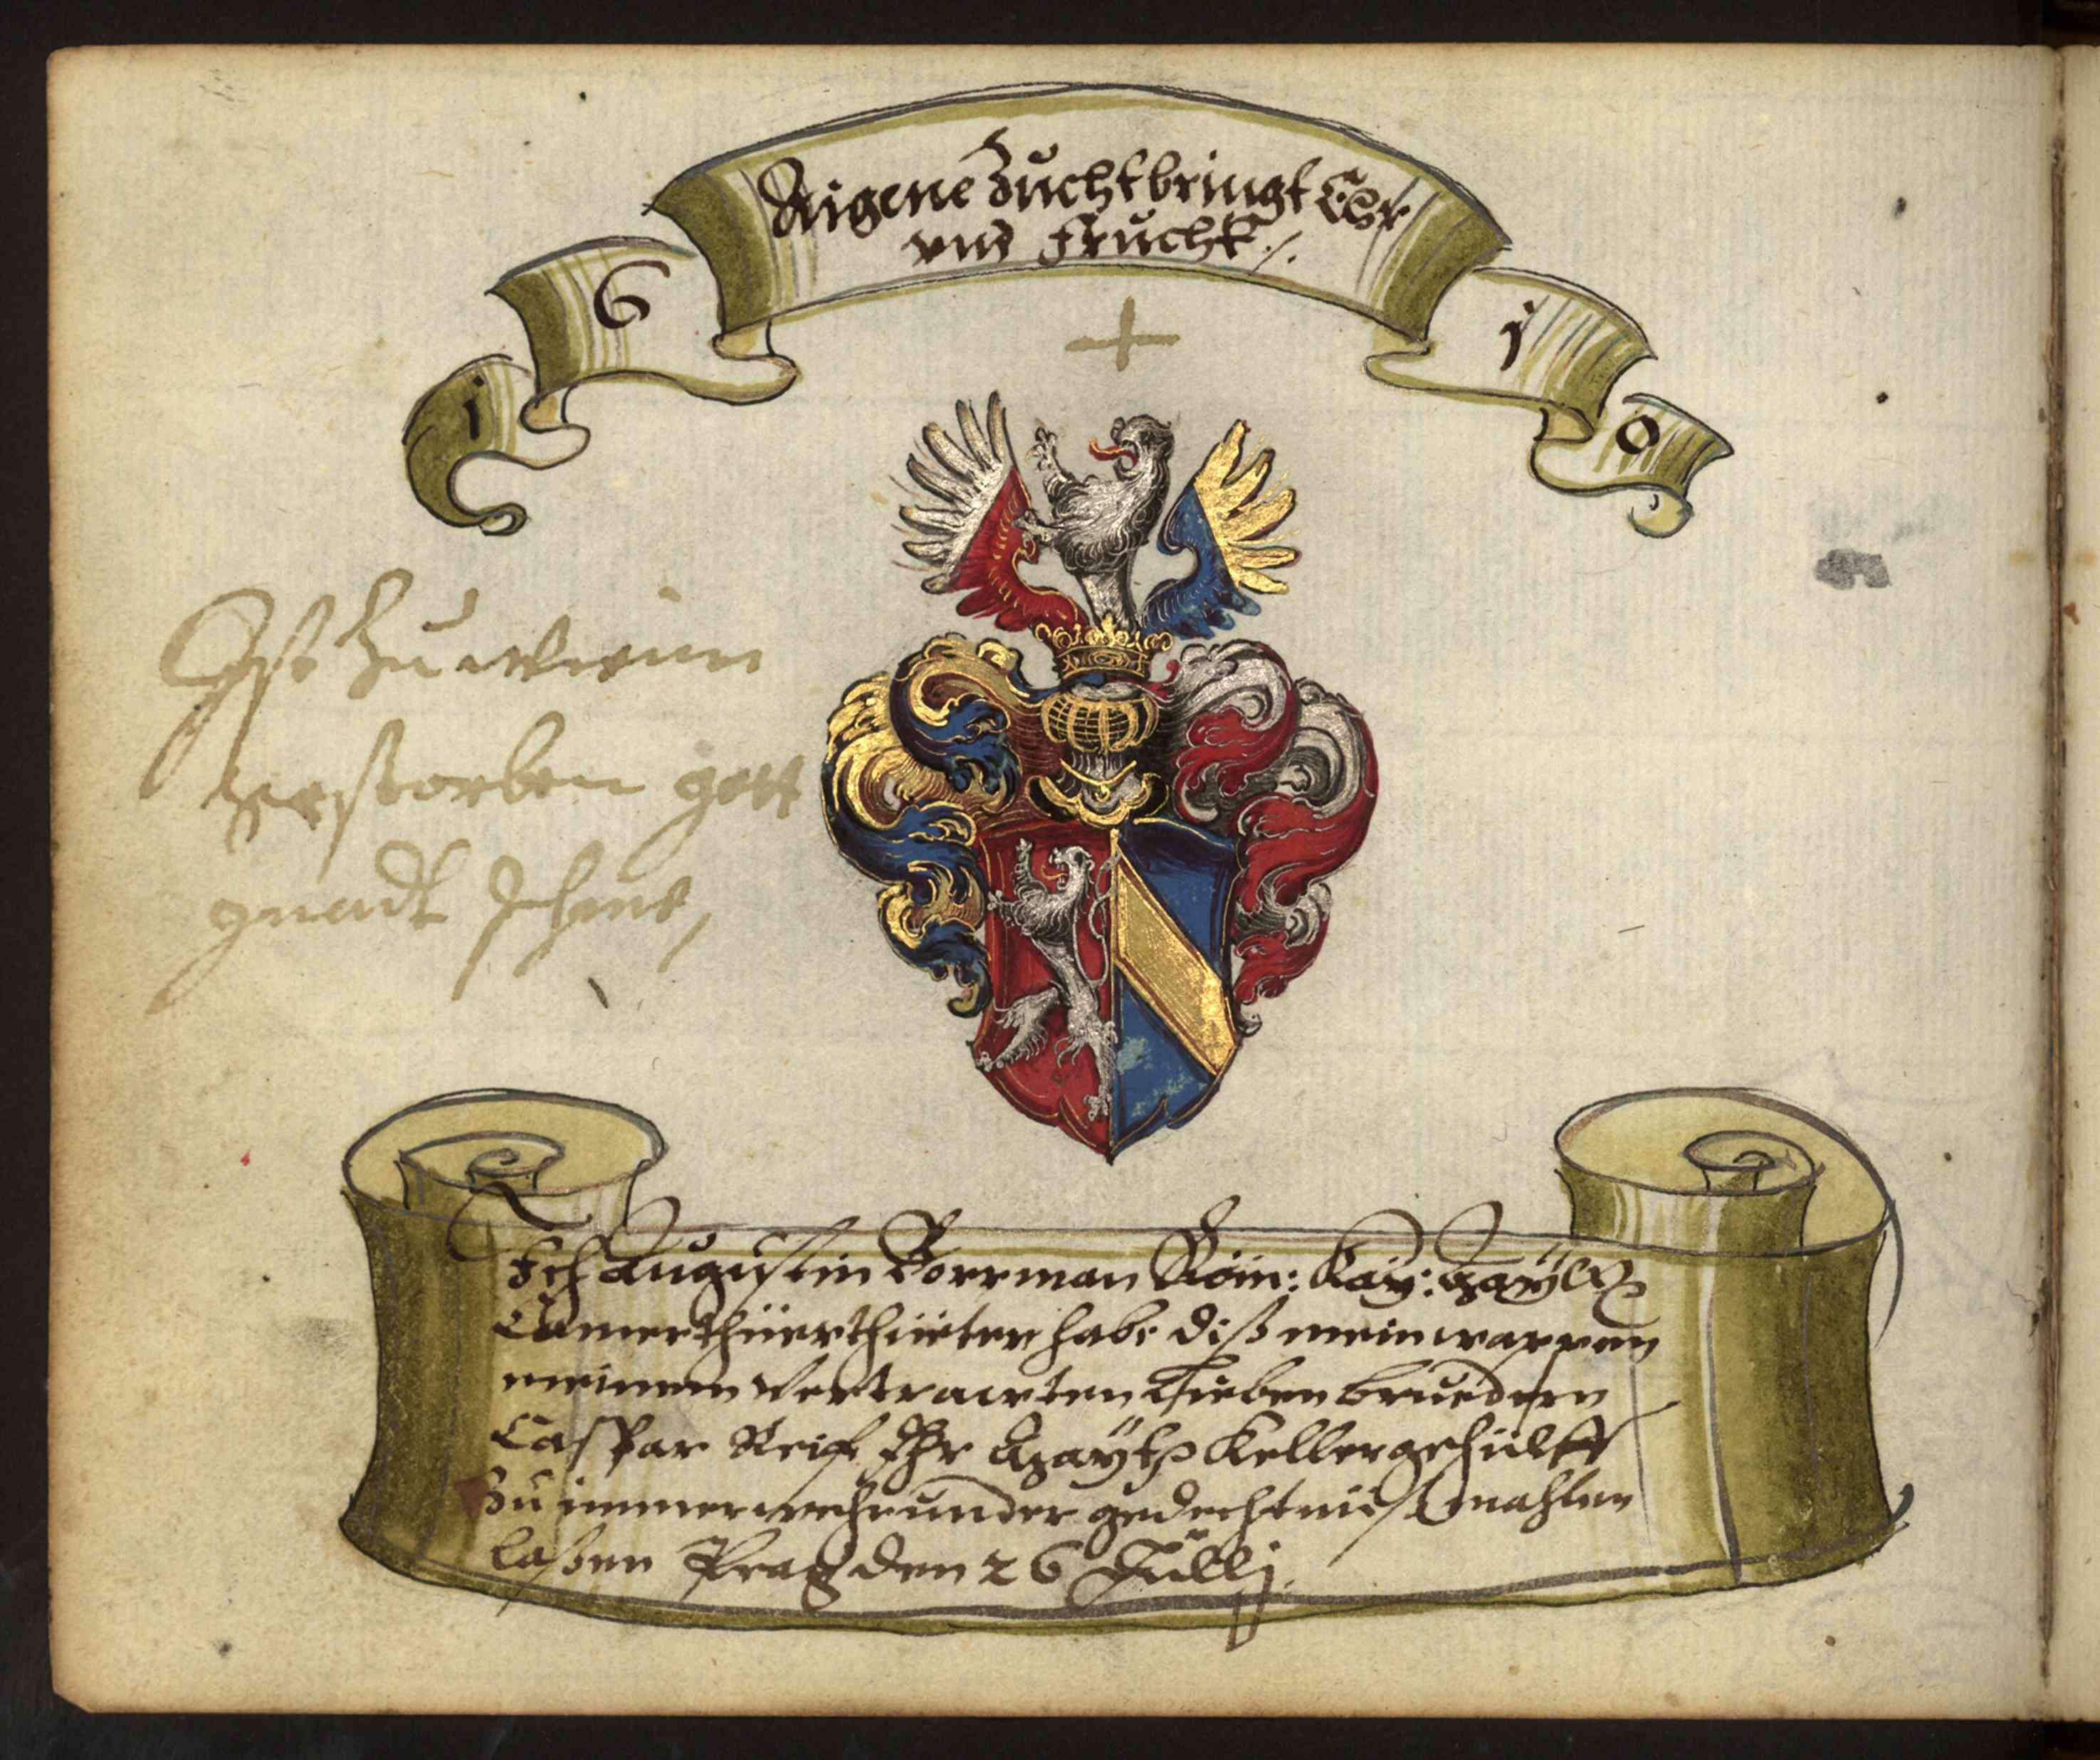 Aigene Zucht bringt Ehr
vnd Frucht ./.
1 6 1 0
Ist Zu wienn
verstorben gott
gnadt Ihme,
Ich Augustin Dorrman Röm: Kay: Mayttz
Camerthüerthüeter habe diß mein wappen
meinem vertrawten Lieben bruedern
Caspar Reiff Ihr Maytz Kellergehülff
Zu immerwehrunder gedechtniß mahlen
laßen Prag den 26 Julij.